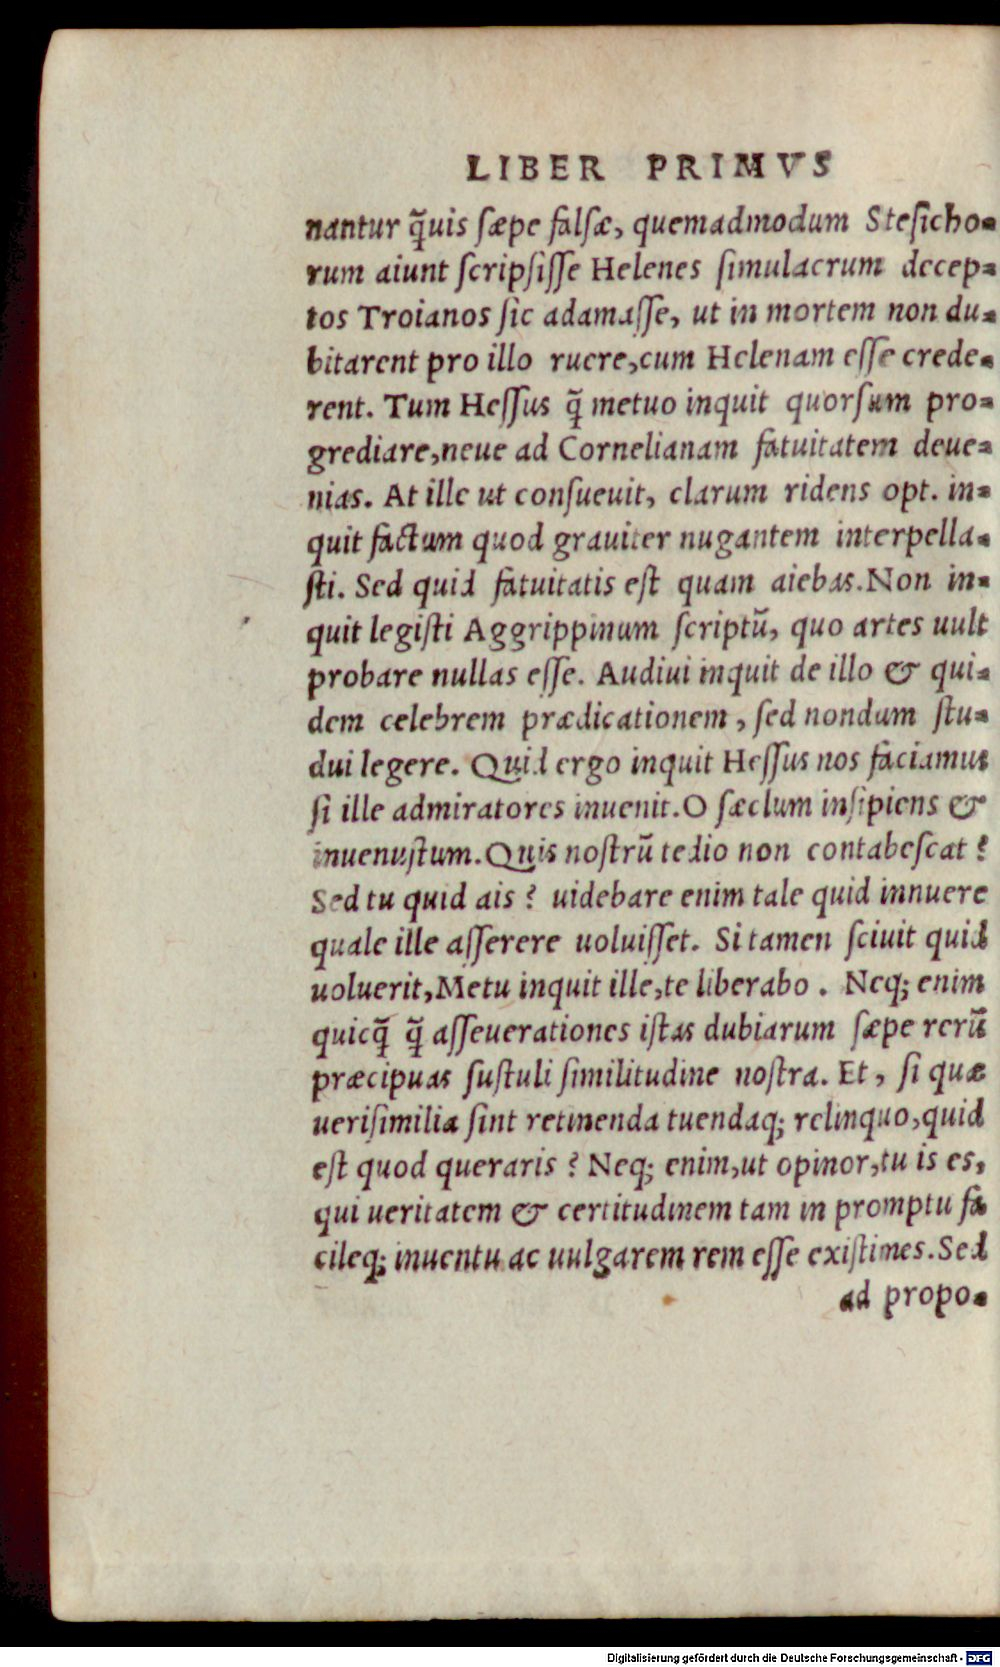 LIBER PRIMVS
nantur q̃uis sæpe falsæ, quemadmodum Stesicho-
rum aiunt scripsisse Helenes simulacrum decep-
tos Troianos sic adamasse, ut in mortem non du-
bitarent pro illo ruere,cum Helenam esse crede-
rent. Tum Hessus q̃ metuo inquit quorsum pro-
grediare,neue ad Cornelianam fatuitatem deue-
nias. At ille ut consueuit, clarum ridens opt. in-
quit factum quod grauiter nugantem interpella-
sti. Sed quid fatuitatis est quam aiebas.Non in-
quit legisti Aggrippinum scriptũ, quo artes uult
probare nullas esse. Audiui inquit de illo & qui-
dem celebrem prædicationem, sed nondum stu-
dui legere. Quid ergo inquit Hessus nos faciamus
si ille admiratores inuenit.O sæclum insipiens &
inuenustum.Quis nostrũ tedio non contabescat ?
Sed tu quid ais ? uidebare enim tale quid innuere
quale ille asserere uoluisset. Si tamen sciuit quid
uoluerit,Metu inquit ille,te liberabo . Neq; enim
quicq̃ q̃ asseuerationes istas dubiarum sæpe rerũ
præcipuas sustuli similitudine nostra. Et, si quæ
uerisimilia sint retinenda tuendaq; relinquo,quid
est quod queraris ? Neq; enim,ut opinor,tu is es,
qui ueritatem & certitudinem tam in promptu fa
cileq; inuentu ac uulgarem rem esse existimes.Sed
ad propo-
Digitalisierung gefördert durch die Deutsche Forschungsgemeinschaft - DFG